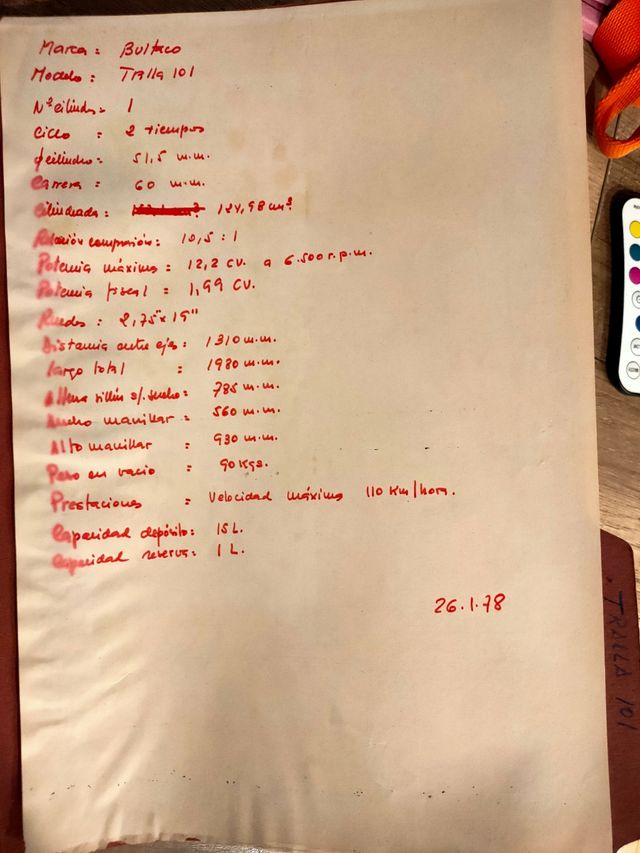 Marca : Bultaco
Modelo : Tralla 101
Nº cilindros : 1
Ciclo : 2 tiempos
φ cilindro : 51,5 m.m.
Carrera : 60 m.m.
Cilindrada : 124,98 cm³
Relación compresión : 10,5 : 1
Potencia máxima = 12,2 CV. a 6.500 r.p.m.
Potencia fiscal = 1,99 CV.
Ruedas : 2,75" x 19"
Distancia entre ejes : 1310 m.m.
Largo total : 1980 m.m.
Altura sillín s/. suelo : 785 m.m.
Ancho manillar : 560 m.m.
Alto manillar = 930 m.m.
Peso en vacio = 90 kgs.
Prestaciones = Velocidad máxima 110 Km/hora.
Capacidad depósito : 15 L.
Capacidad reserva : 1 L.
26.1.78
TRALLA 101